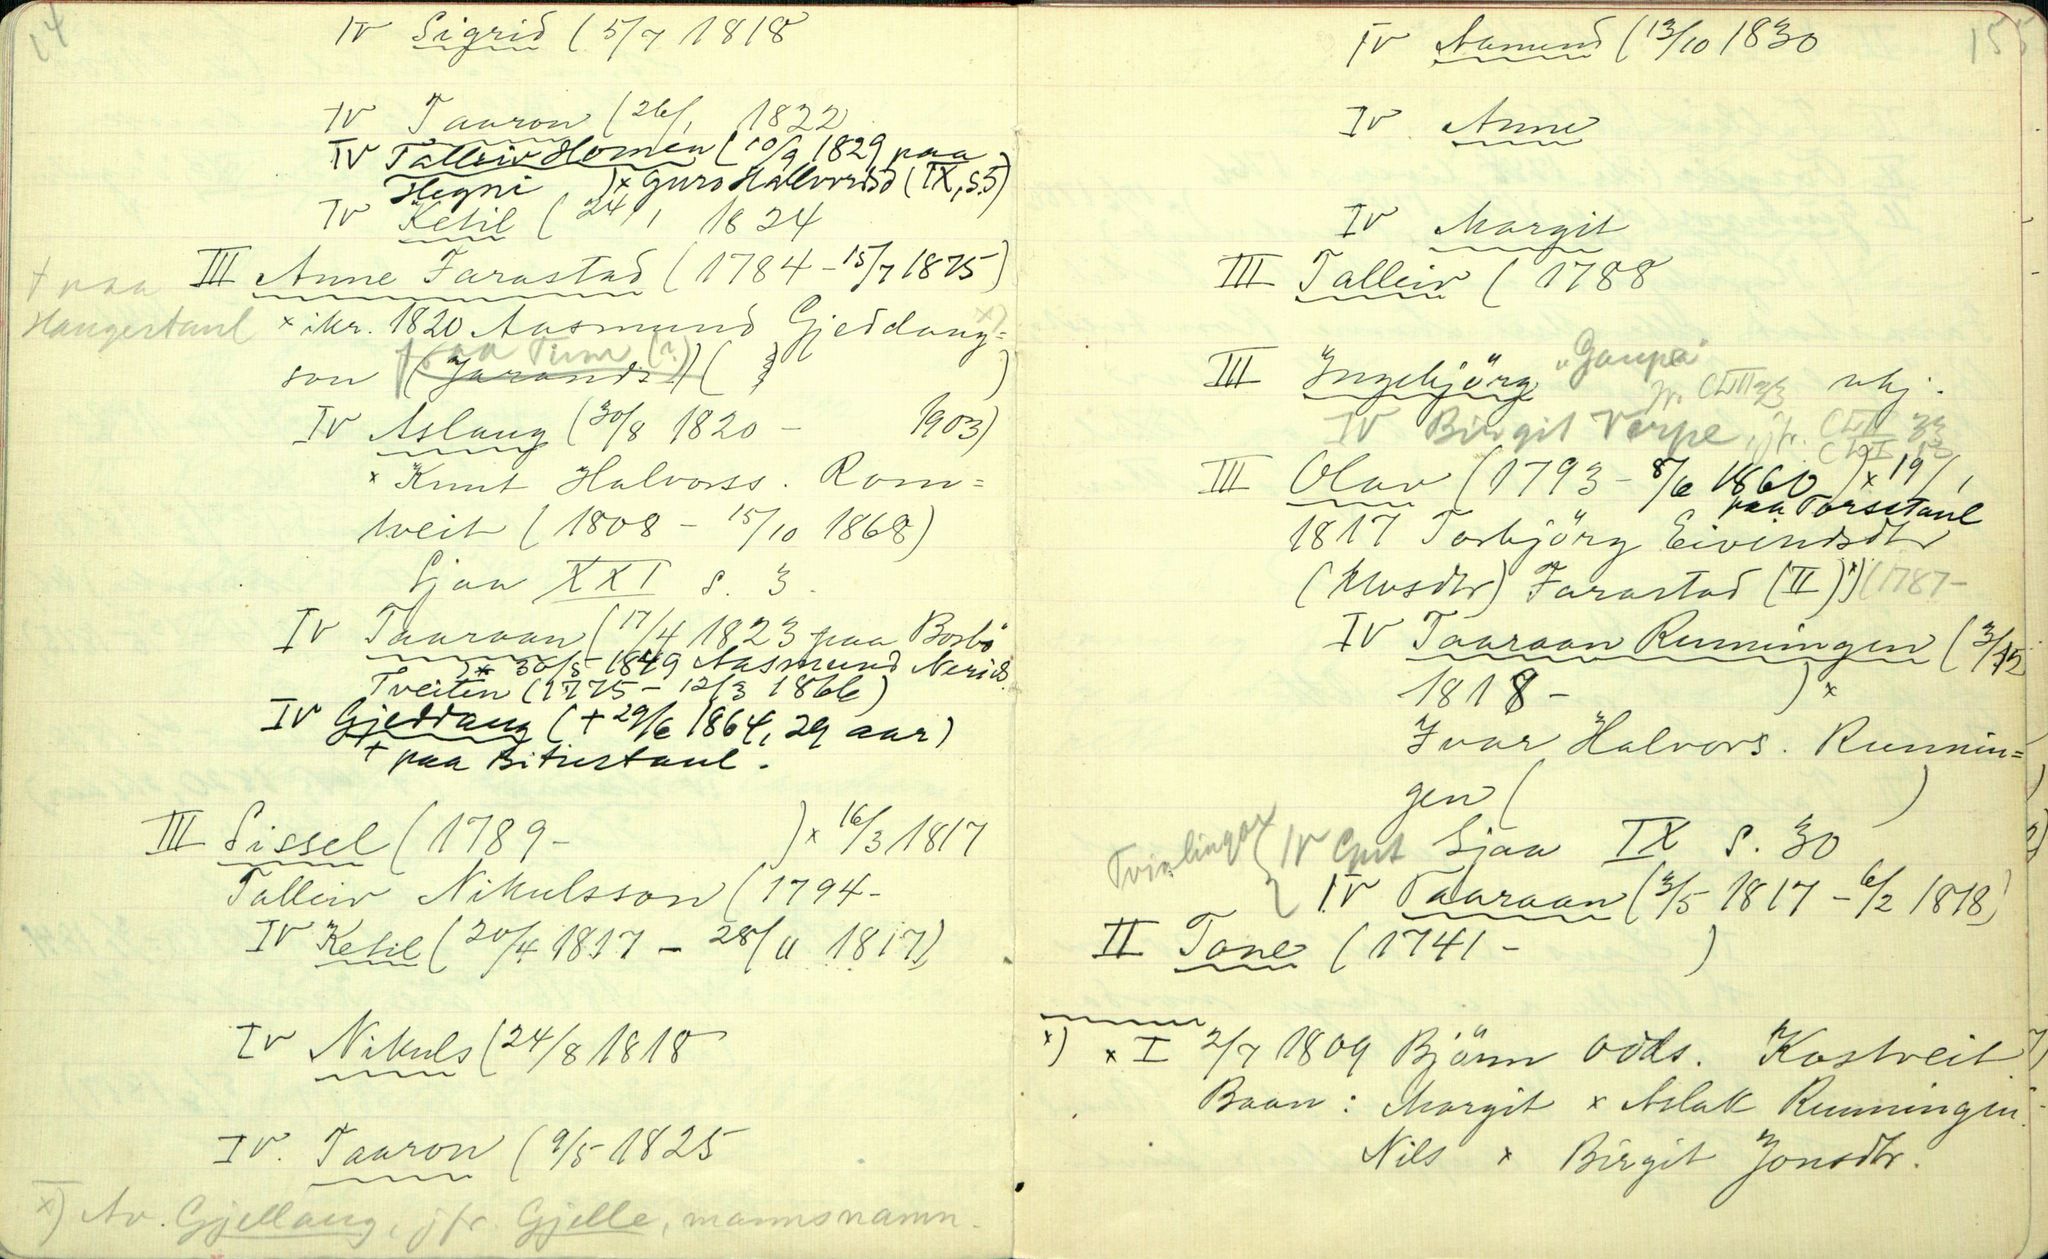 IV Sigrid (5/7 1818
IV Taaron (26/1 1822
IV Talleiv Homen (10/9 1829 paa
Hegni )x Guro Hallvordsd (IX, s.5)
IV Ketil (24/1 1824
III Anne Farastad (1784 - 15/7 1875)
+ paa
Haugestaul
x ikr. 1820 Aasmund Gjeddaug=
x)
son (Jaronds) ( )
paa Tinn (?)
IV Aslaug (30/8 1820 - 1903)
x Knut Halvorss. Rom=
tveit (1808 - 15/10 1868)
Sjaa XXI s. 3.
IV Taaraan (17/4 1823 paa Bosbö
)x 30/5 1849 Aasmund Nerid
Tveiten (1775 - 12/3 1866)
IV Gjeddaug (+ 29/6 1864, 29 aar)
+ paa Bitustaul.
III Sissel (1789 - )x 16/3 1817
Talleiv Nikulsson (1794 -
IV Ketil (20/4 1817 - 28/11 1817)
IV Nikuls (24/8 1818
IV. Taaron (9/5 1825
x) Av. Gjellaug, jfr. Gjelle, mannsnamn.
155
IV Aamund (13/10 1830
IV Anne
IV Margit
III Talleiv (1788
III Ingebjörg "Gaupa" ukj.
IV Birgit Verpe, jfr.
III Olav (1793 - 8/6 1860 )x 19/1
paa Torsstaul
1817 Torbjörg Eivindsdtr
(Knusdtr) Farastad (II)) (1787 -
IV Taaraan Runningen (3/12
1818 - )x
Ivar Halvors. Runnin=
gen ( )
Sjaa IX s. 30
Tvinlingar { IV Gut
IV Taaraan (3/5 1817 - 6/2 1818)
II Tone (1741 - )
x) x I 2/7 1809 Björn Odds. Kostveit
Baan: Margit x Aslak Runningen.
Nils x Birgit Jonsdtr.